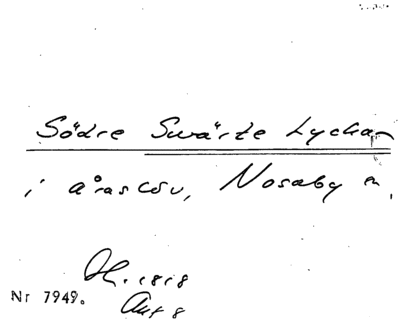 Södre Swärte Lyckan
i åraslöv, Nosaby sn.
H. 1818
Akt 8
Nr 7949.